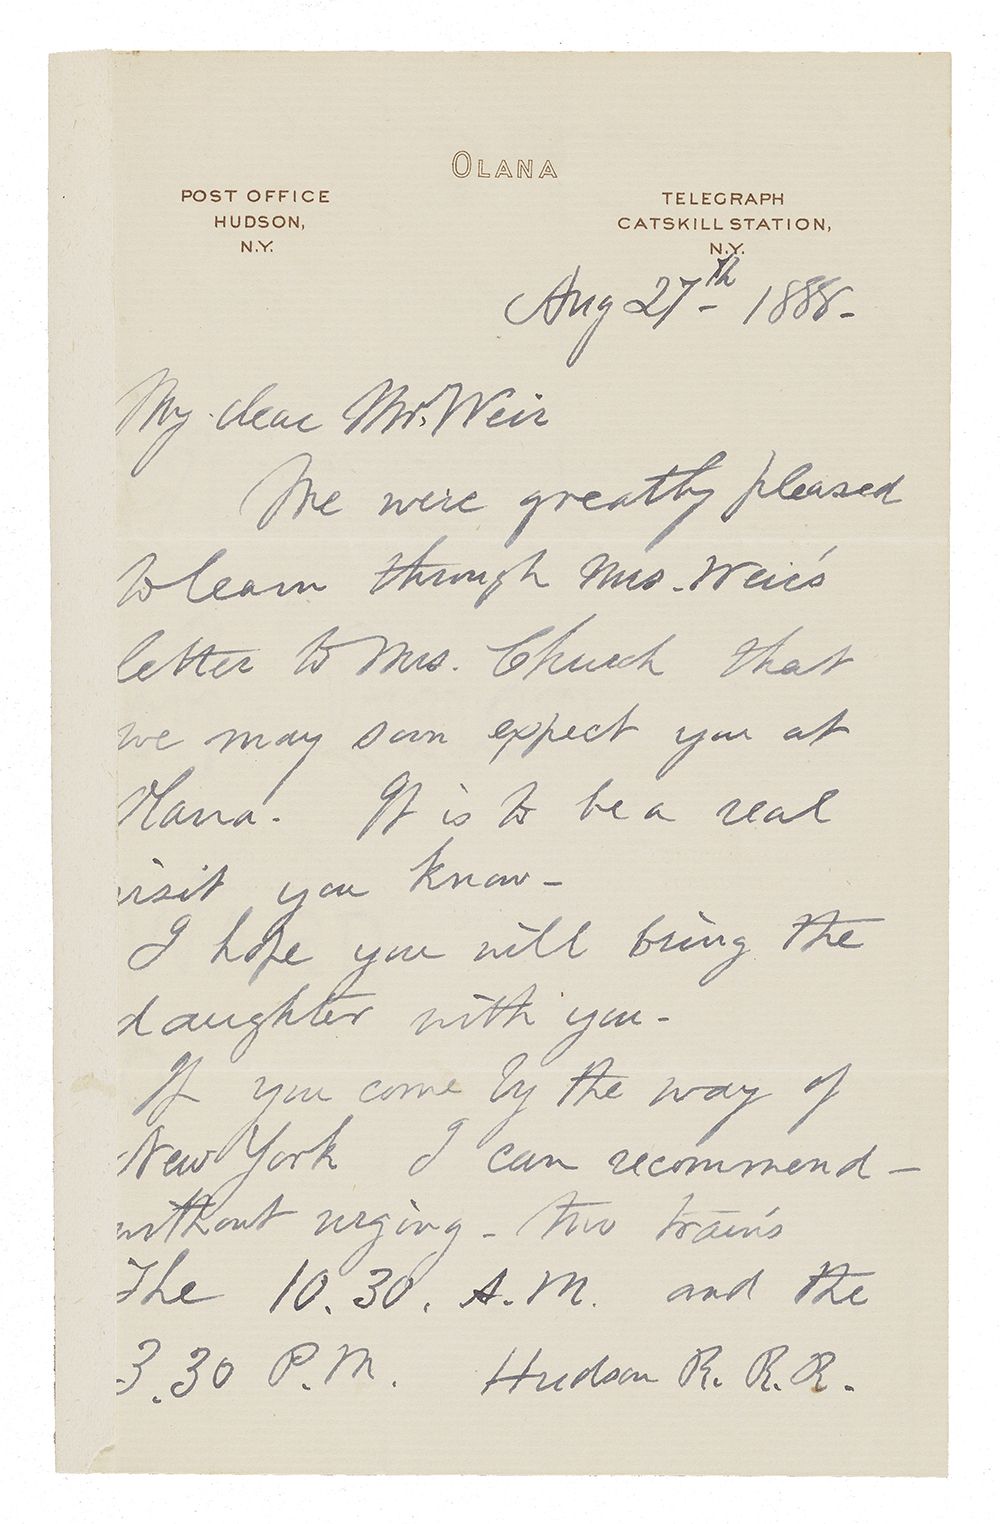 OLANA
POST OFFICE
HUDSON,
N.Y.
TELEGRAPH
CATSKILL STATION,
N.Y.
Aug 27th 1888-
My dear Mr. Weir
We were greatly pleased
to learn through Mrs. Weir's
letter to Mrs. Church that
we may soon expect you at
Olana. It is to be a real
visit you know-
I hope you will bring the
daughter with you-
If you come by the way of
New York I can recommend-
without urging- two trains
The 10.30. A.M. and the
3.30 P.M. Hudson R. R. R.